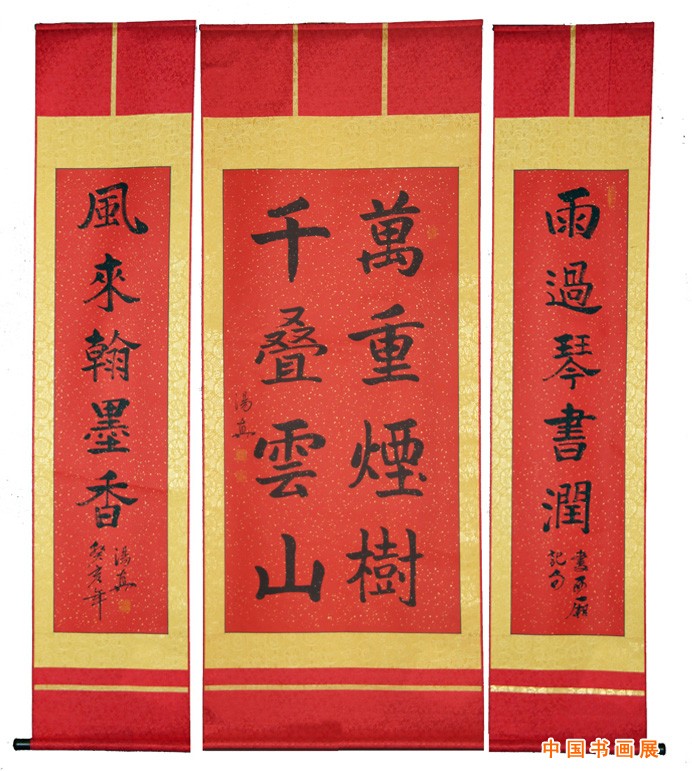 雨過琴書潤
書西廂
記句
萬重煙樹
千叠雲山
湯真
風來翰墨香
湯真
癸亥年
中国书画展